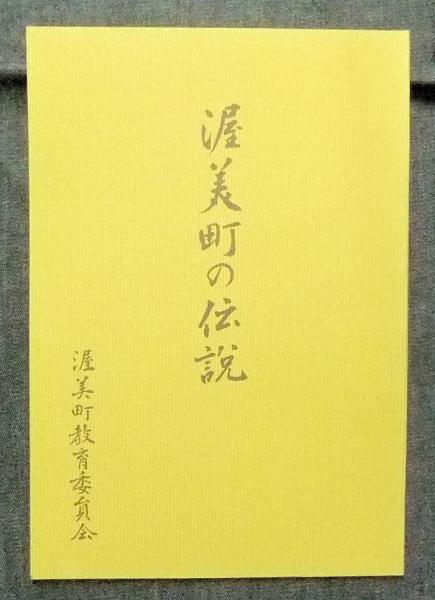 渥美町の伝説
渥美町教育委員会